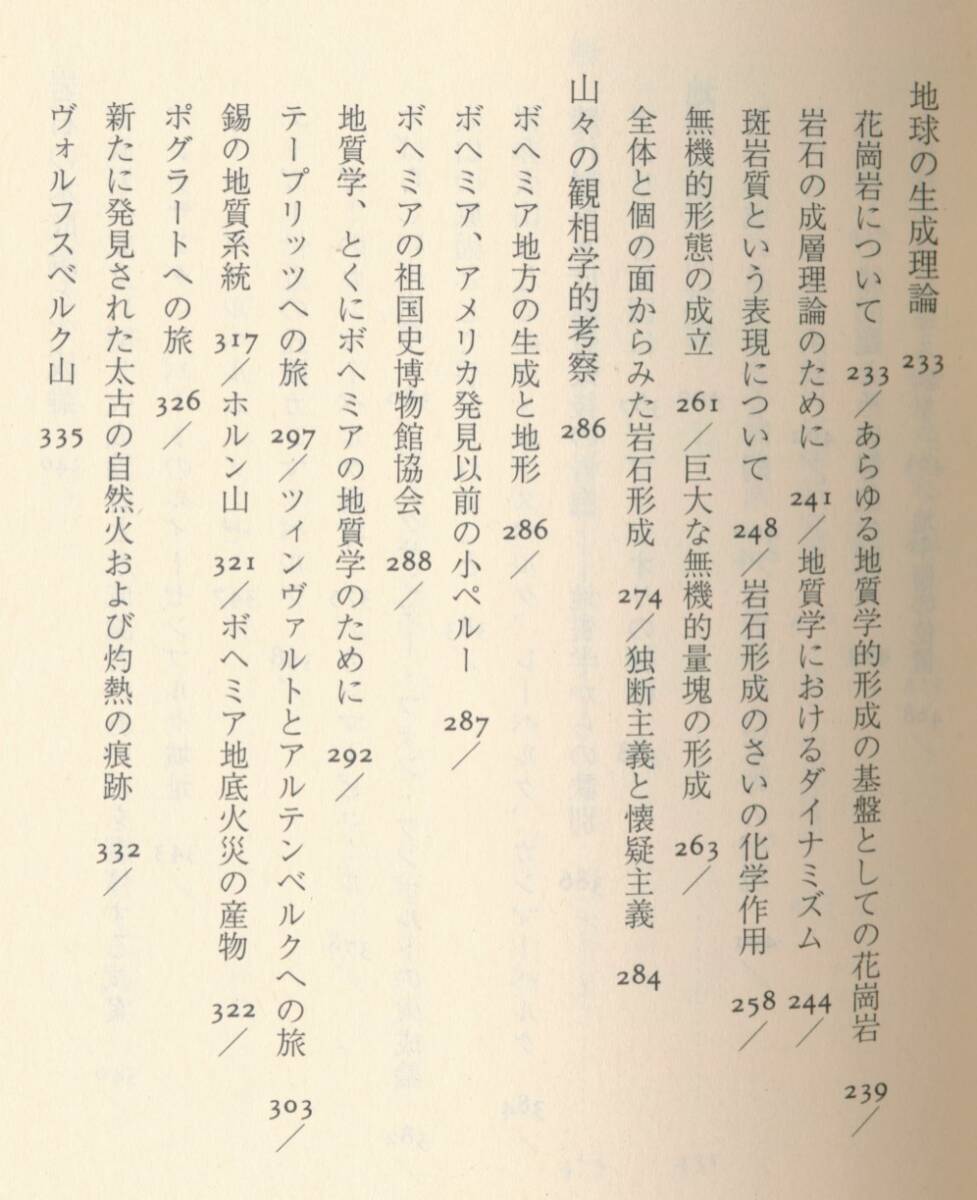 地球の生成理論 233
花崗岩について 233／あらゆる地質学的形成の基盤としての花崗岩 239／
岩石の成層理論のために 241／地質学におけるダイナミズム 244／
斑岩質という表現について 248／岩石形成のさいの化学作用 258／
無機的形態の成立 261／巨大な無機的量塊の形成 263／
全体と個の面からみた岩石形成 274／独断主義と懐疑主義 284
山々の観相学的考察 286
ボヘミア地方の生成と地形 286／
ボヘミア、アメリカ発見以前の小ペルー 287／
ボヘミアの祖国史博物館協会 288／
地質学、とくにボヘミアの地質学のために 292／
テープリッツへの旅 297／ツィンヴァルトとアルテンベルクへの旅 303／
錫の地質系統 317／ホルン山 321／ボヘミア地底火災の産物 322／
ポグラートへの旅 326／
新たに発見された太古の自然火および灼熱の痕跡 332／
ヴォルフスベルク山 335